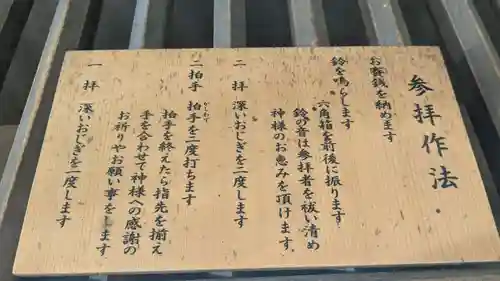 参拝作法
お賽銭を納めます
鈴を鳴らします
六角箱を前後に振ります
鈴の音は参拝者を祓い清め
神様のお恵みを頂けます
二拝 深いおじぎを二度します
二拍手 拍手を二度打ちます
かしわで
拍手を終えたら指先を揃え
手を合わせて神様への感謝の
お祈りやお願い事をします
一拝 深いおじぎを一度します